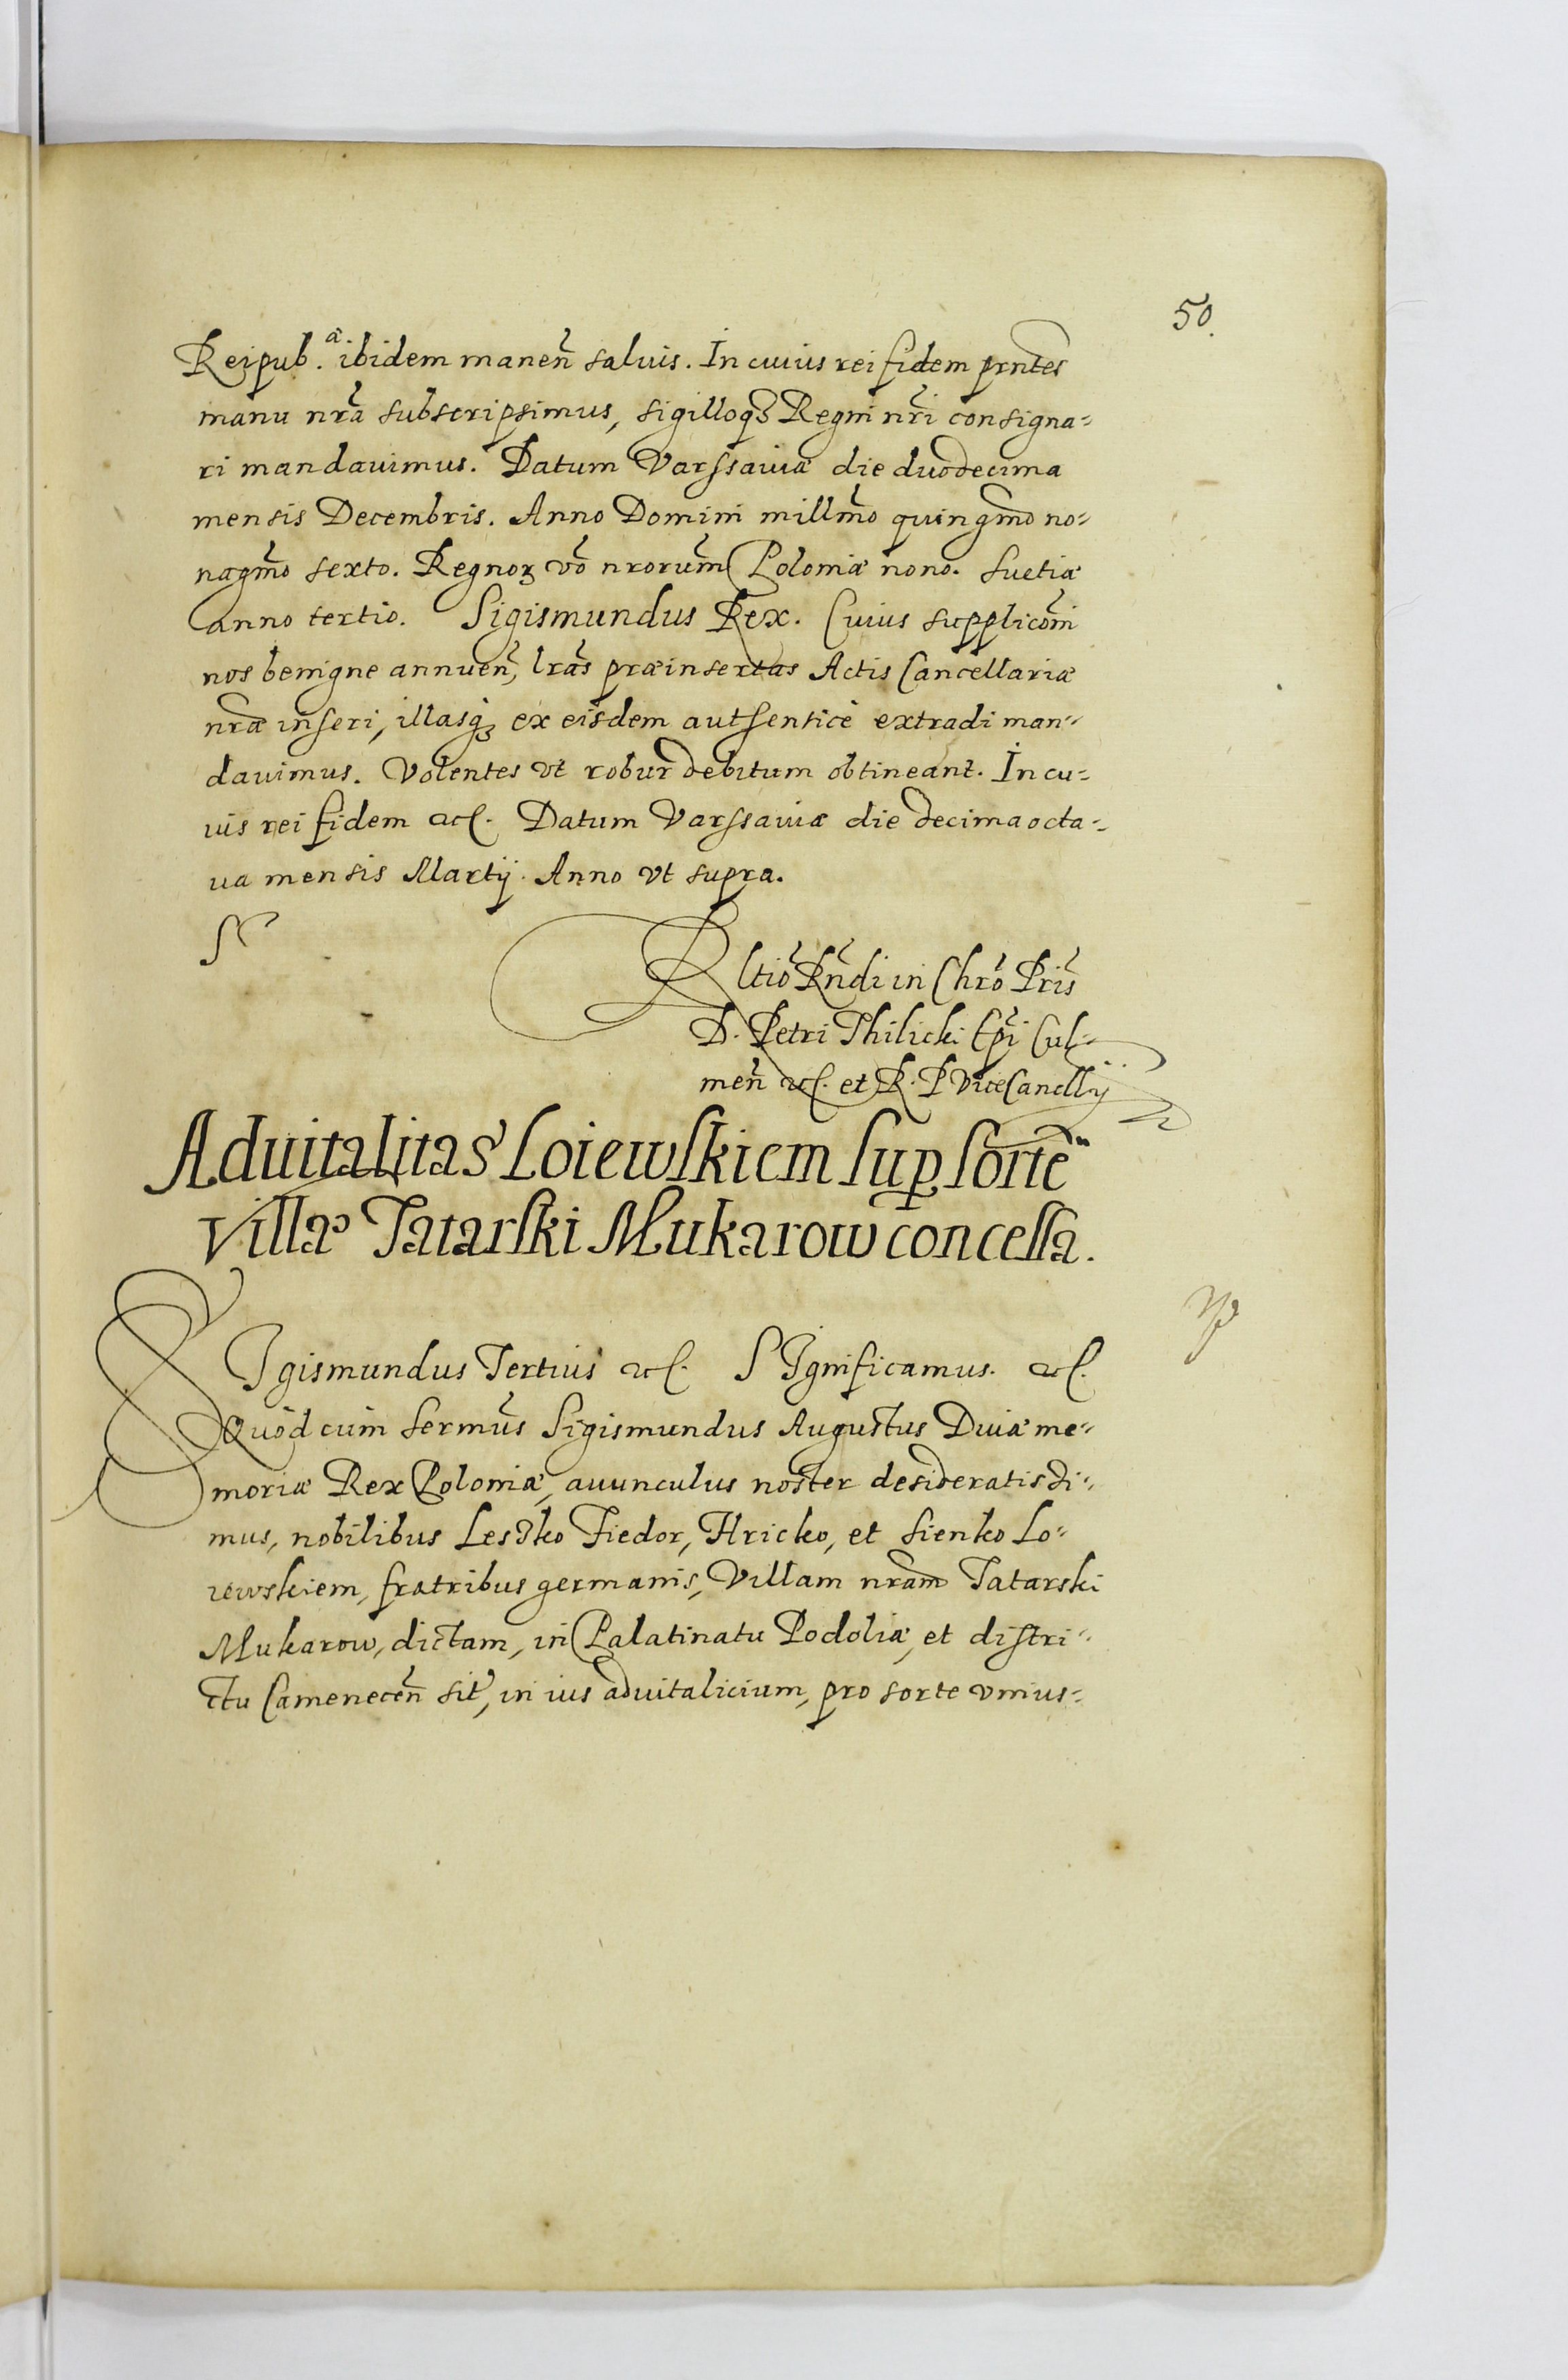 50.
Reipub.ͣ ibidem maneñ saluis. In cuius rei fidem prñtes
manu nrã subscripsimus, sigilloqꝫ Regni nrĩ consigna-
ri mandauimus. Datum Varssauiæ die duodecima
mensis Decembris. Anno Domini millmõ quingmõ no-
nagmõ sexto. Regnoꝝ võ nrorum̃ Poloniæ nono. Suetiæ
anno tertio. Sigismundus Rex. Cuius supplicõni
nos benigne annueñ, lrãs præinsertas Actis Cancellariæ
nræ inseri, illasqꝫ ex eisdem authenticè extradi man-
dauimus. Volentes vt robur debitum obtineant. In cu-
uis rei fidem etc. Datum Varssauiæ die decima octa-
ua mensis Martij. Anno vt supra.
Rltiõ Rñdi in Chrõ Pris̃
D. Petri Thilicki Epĩ Cul-
meñ etc. et R. P. ViceCancllij
Aduitalitas Loiewskiem sup sorte
Villæ Tatarski Mukarow concessa.
SIgismundus Tertius etc. SIgnificamus. etc.
Quod cum sermũs Sigismundus Augustus Diuæ me-
moriæ Rex Poloniæ, auunculus noster desideratissi-
mus, nobilibus Lesko Fiedor, Hricko, et Sienko Lo-
iewskiem, fratribus germanis, Villam nram̃ Tatarski
Mukarow, dictam, in Palatinatu Podoliæ, et distri-
ctu Cameneceñ sit, in ius aduitalicium, pro sorte vnius-